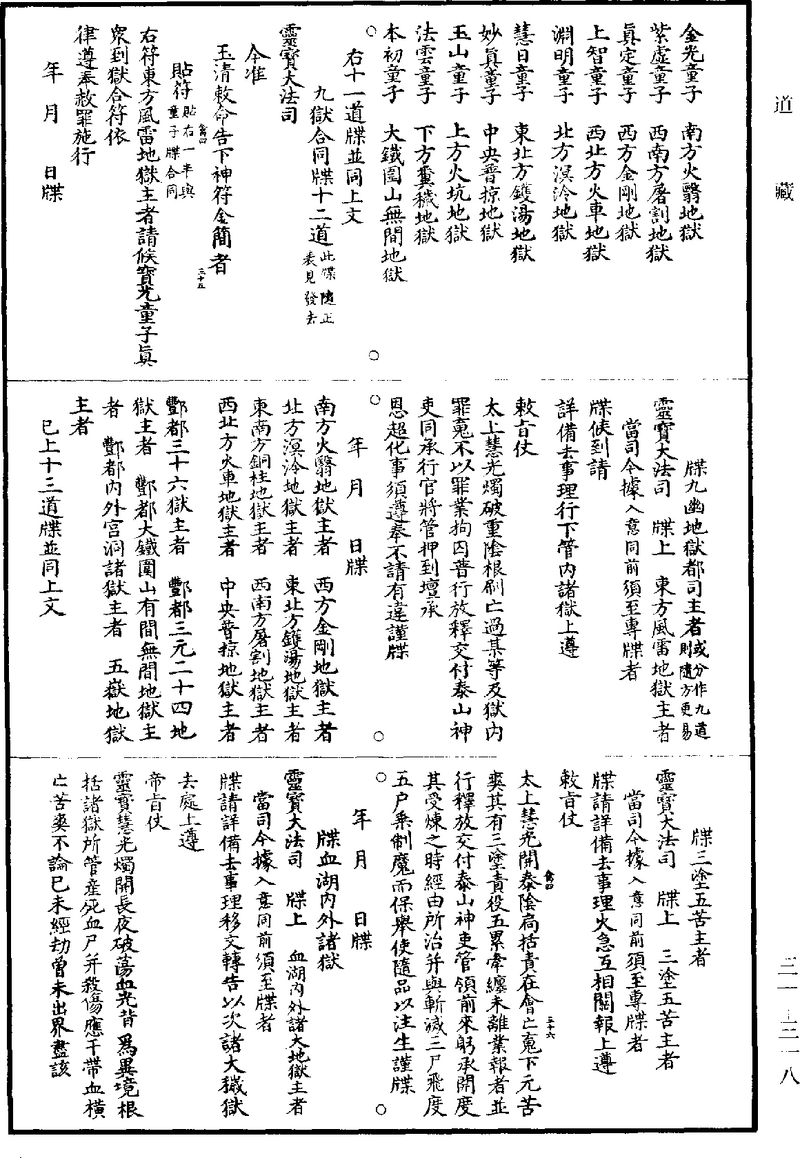 道藏
金光童子　南方火翳地獄
紫虛童子　西南方屠割地獄
眞定童子　西方金剛地獄
上智童子　西北方火車地獄
淵明童子　北方溟泠地獄
慧日童子　東北方鑊湯地獄
妙眞童子　中央普掠地獄
玉山童子　上方火坑地獄
法雲童子　下方糞穢地獄
本初童子　大鐵圍山無間地獄
右十一道牒並同上文
九獄合同牒十二道此牒隨正表見發去
靈寶大法司
今准
玉清敕命告下神符金簡者
貼符貼右一半與童子牒合同
右符東方風雷地獄主者請候寶光童子眞
衆到獄合符依
律遵奉赦罪施行
年　月　日牒
三十五
牒九幽地獄都司主者或分作九道則隨方更易
靈寶大法司　牒上　東方風雷地獄主者
當司今據入意同前須至專牒者
牒候到請
詳備去事理行下管內諸獄上遵
敕旨仗
太上慧光燭破重陰根刷亡過某等及獄內
罪䰟不以罪業拘囚普行放釋交付泰山神
吏同承行官將管押到壇承
恩超化事須遵奉不請有違謹牒
年　月　日牒
南方火翳地獄主者　西方金剛地獄主者
北方溟泠地獄主者　東北方鑊湯地獄主者
東南方銅柱地獄主者　西南方屠割地獄主者
西北方火車地獄主者　中央普掠地獄主者
酆都三十六獄主者　酆都三元二十四地
獄主者　酆都大鐵圍山有間無間地獄主
者　酆都內外宫洞諸獄主者　五嶽地獄
主者
已上十三道牒並同上文
牒三塗五苦主者
靈寶大法司　牒上　三塗五苦主者
當司今據入意同前須至專牒者
牒請詳備去事理火急互相關報上遵
敕旨仗
太上慧光開泰陰局括責在會亡䰟下元苦
爽其有三塗責役五累牽纏未離業報者並
行釋放交付泰山神吏管領前來躬承開度
其受煉之時經由所治并與斬滅三尸飛度
五戶乘制魔而保舉使隨品以注生謹牒
年　月　日牒
三十六
牒血湖內外諸獄
靈寶大法司　牒上　血湖內外諸大地獄主者
當司今據入意同前須至牒者
牒請詳備去事理移文轉告以次諸大穢獄
去處上遵
帝旨仗
靈寶慧光燭開長夜破蕩血光背爲異境根
括諸獄所管産死血尸并殺傷應干帶血橫
亡苦爽不論已未經劫曾未出界盡該
三一—三一八